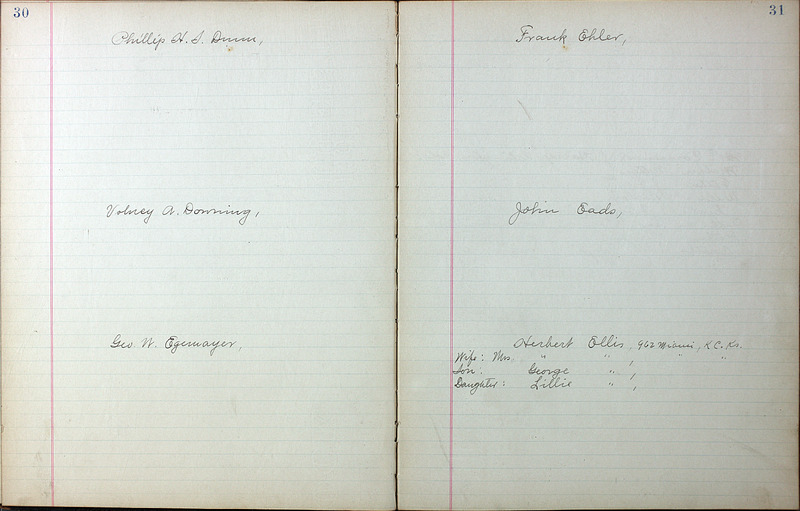 30
Phillip H. S. Dunn,
Volney A. Downing,
Geo. W. Egemayer,
31
Frank Ehler,
John Eads,
Herbert Ellis, 962 Miami, K.C. Ks.
Wife: Mrs. " " , " "
Son: George " ,
Daughter: Lillie " ,